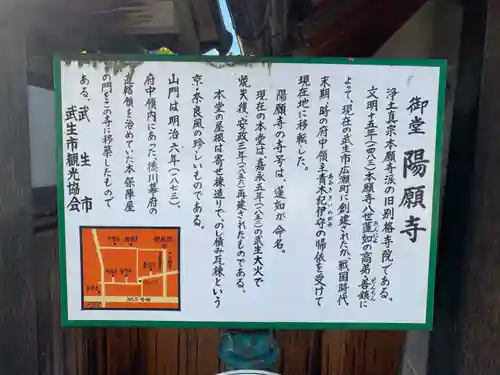 御堂 陽願寺
浄土真宗本願寺派の旧別格寺院である。
文明十五年(一四八三)本願寺八世蓮如の高弟・善鎮に
よって、現在の武生市広瀬町に創建されたが、戦国時代
末期、時の府中領主青木紀伊守の帰依を受けて
現在地に移転した。
陽願寺の寺号は、蓮如が命名。
現在の本堂は嘉永五年(一八五二)の武生大火で
焼失後、安政三年(一八五六)再建されたものである。
本堂の屋根は寄せ棟造りで、のし積み瓦棟という
京・奈良風の珍しいものである。
山門は明治六年(一八七三)
府中領内にあった、徳川幕府の
直轄領を治めていた本保陣屋
の門をこの寺に移築したもので
ある。
武生市
武生市観光協会